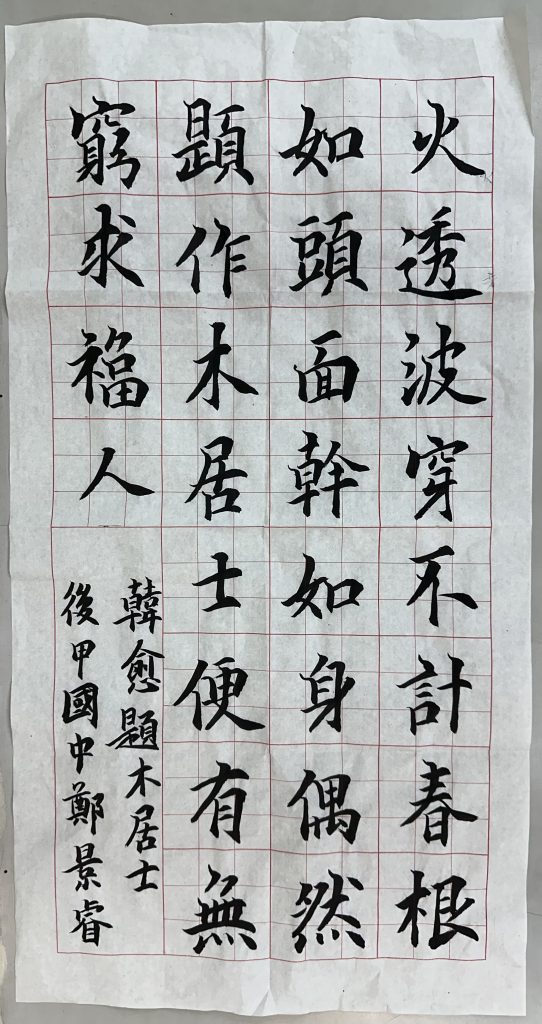 火透波穿不計春根
如頭面幹如身偶然
題作木居士便有無
窮求福人
韓愈題木居士
後甲國中鄭景睿